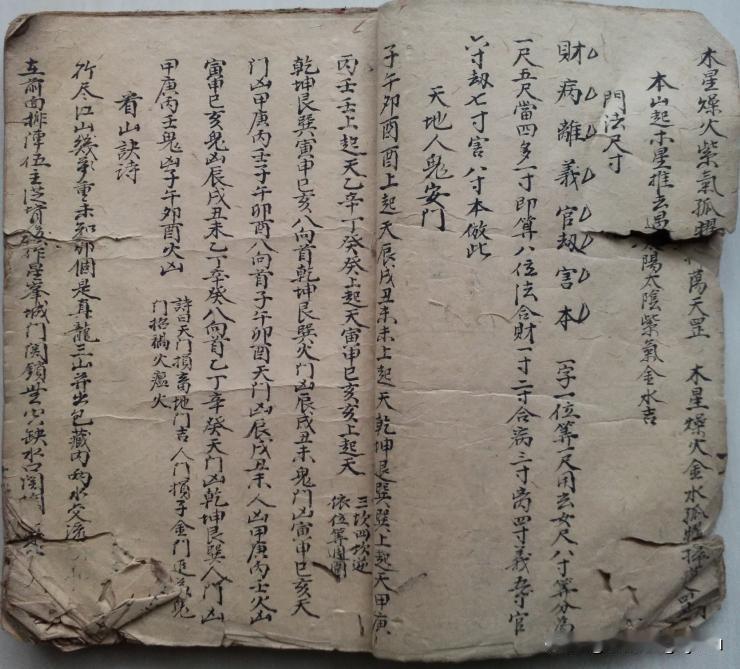 木星燥火紫氣孤 萬天罡 木星燥火金水孤
本山起木星推去遇太陽太陰紫氣金水吉
門法尺寸
財病離義官劫害本 一字一位筭一尺用玄女尺八寸筭分為
一尺五尺當四多一寸即筭八位法合財一寸二寸合病三寸离四寸義五寸官
六寸劫七寸害八寸本倣此
天地人鬼安門
子午卯酉酉上起天辰戌丑未未上起天乾坤艮巽巽上起天甲庚
丙壬壬上起天乙辛丁癸癸上起天寅申巳亥亥上起天 三次四次逆
依位筭周圍
乾坤艮巽寅申巳亥八向首乾坤艮巽火門凶辰戌丑未鬼門凶寅申巳亥天
門凶甲庚丙壬子午卯酉八向首子午卯酉天門凶辰戌丑未人凶甲庚丙壬火凶
寅申巳亥鬼凶辰戌丑未乙丁辛癸八向首乙丁辛癸天門凶乾坤艮巽人門凶
甲庚丙壬鬼凶子午卯酉火凶 詩曰天門損畜地門吉人門損子金門
門招禍火瘟火
看山訣詩
行尽江山幾萬重未知那個是真龍三山并出包藏內兩水交流
左前面排 城門関鎖 缺水口関